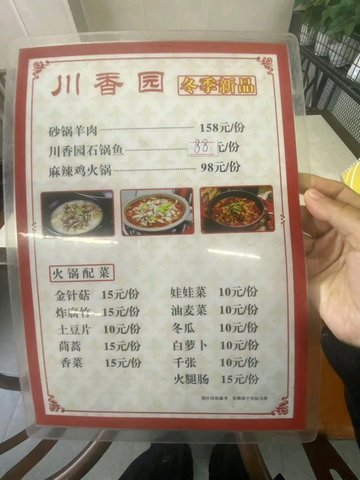 川香园 冬季新品
砂锅羊肉 158元/份
川香园石锅鱼 88元/份
麻辣鸡火锅 98元/份
火锅配菜
金针菇 15元/份 娃娃菜 10元/份
炸腐竹 15元/份 油麦菜 10元/份
土豆片 10元/份 冬瓜 10元/份
茼蒿 15元/份 白萝卜 10元/份
香菜 15元/份 千张 10元/份
火腿肠 15元/份
图片仅供参考，实物请于实际为准